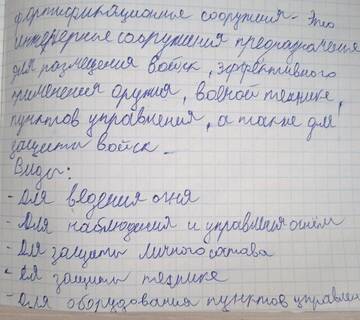 Фортификационные сооружения - это
инженерные сооружения предназначен
для размещения войск, эффективного
применения оружия, военной технике,
пунктов управления, а также для
защиты войск.
Виды:
- Для ведения огня
- Для наблюдения и управления огнём
- Для защиты личного состава
- Для защиты технике
- Для оборудования пунктов управлен